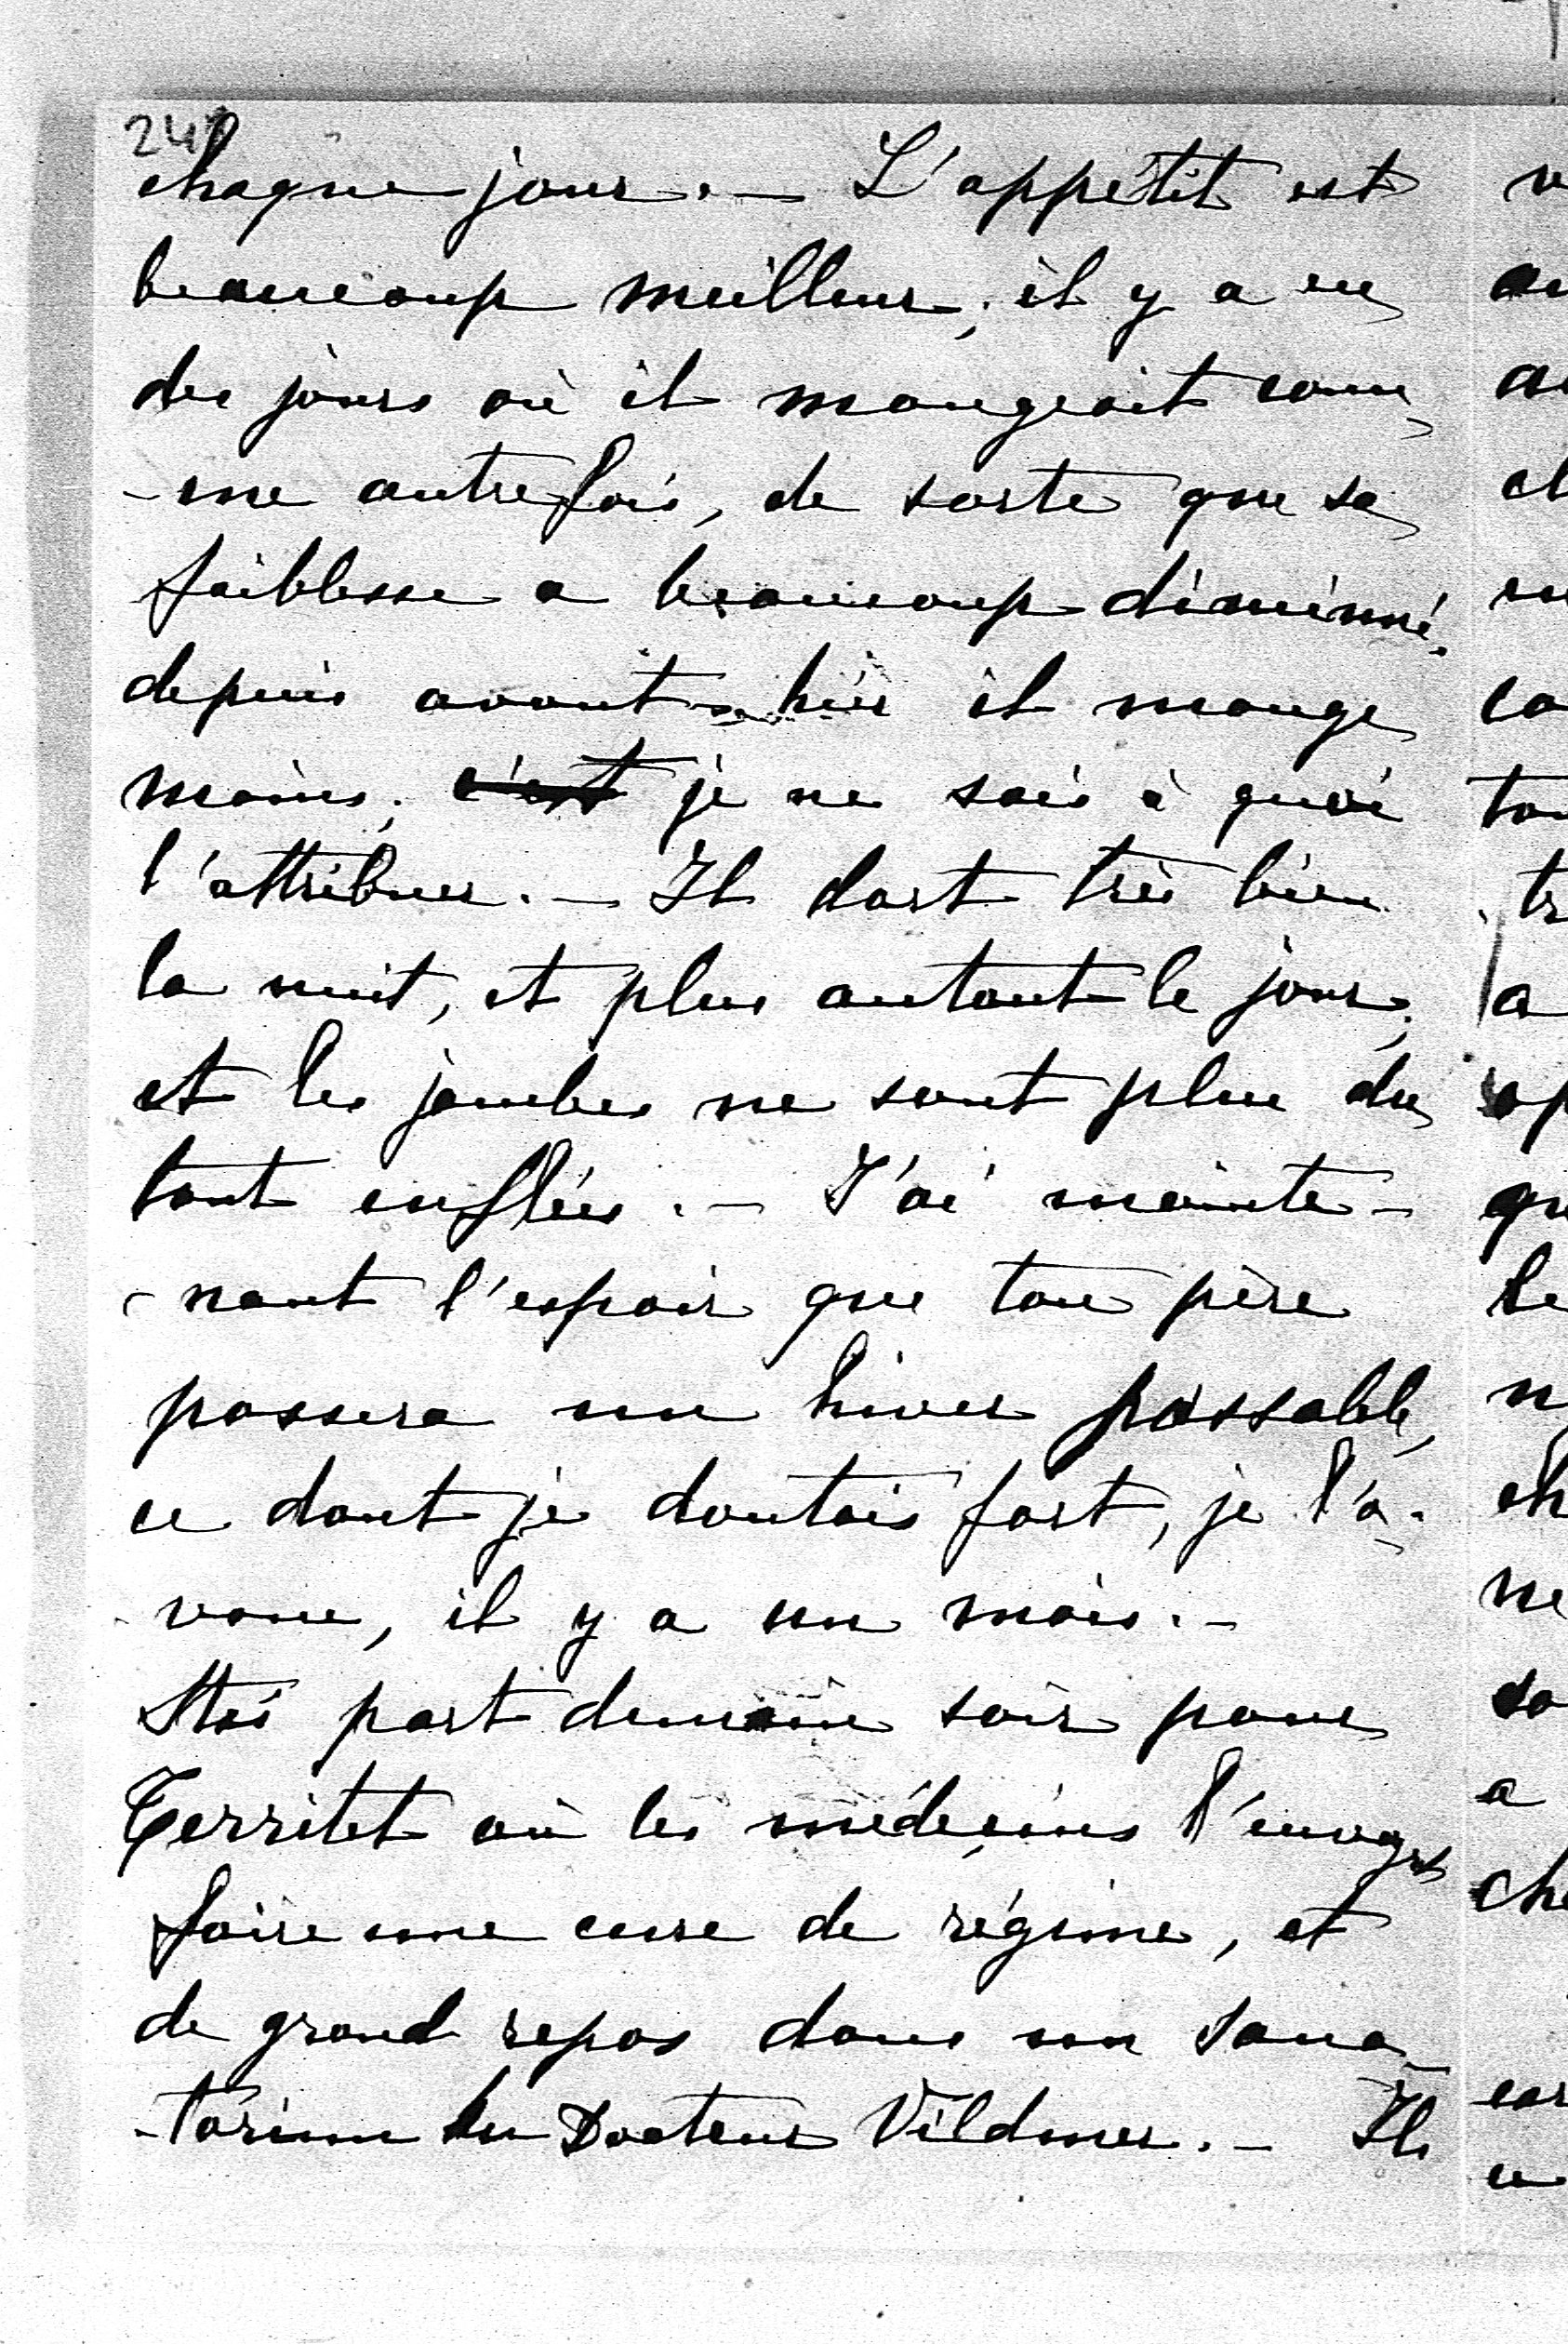 chaque jour. — L'appétit est
beaucoup meilleur; il y a eu
des jours où il mangeait com
-me autrefois, de sorte que sa
faiblesse a beaucoup diminué.
depuis avant-hier il mange
moins; c'est je ne sais à quoi
l'attribuer. — Il dort très bien
la nuit, et plus autant le jour;
et les jambes ne sont plus du
tout enflées. — J'ai mainte-
-nant l'espoir que ton père
passera un hiver passable,
ce dont je doutais fort, je l'a-
voue, il y a un mois. —
part demain soir pour
Territet où les médecins l'envoyent
faire une cure de régime, et
de grand repos dans un sana-
-torium du Docteur Vildmer. — Ils